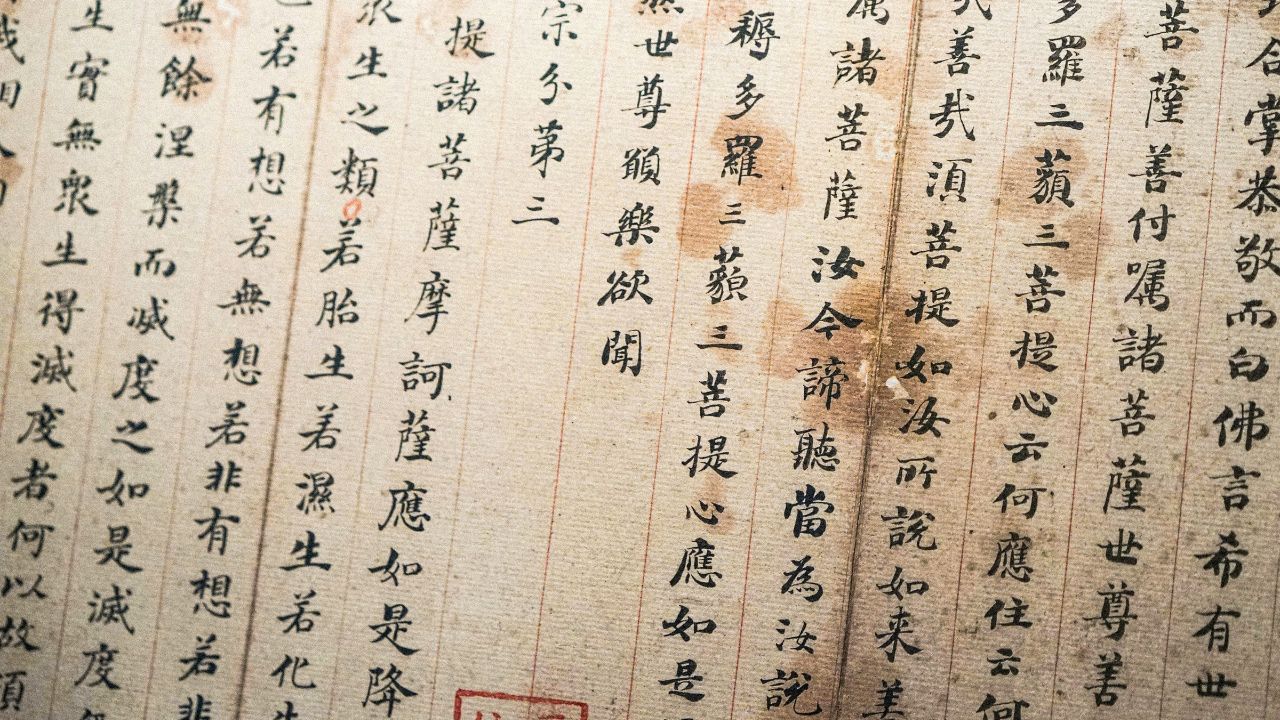 合掌恭敬而白佛言希有世
菩薩善付囑諸菩薩世尊善
多羅三藐三菩提心云何應住云何
哉善哉須菩提如汝所說如来善
囑諸菩薩汝今諦聽當為汝說
耨多羅三藐三菩提心應如是
然世尊願樂欲聞
宗分第三
提諸菩薩摩訶薩應如是降
眾生之類若胎生若濕生若化生
若有想若無想若非有想若非
無餘涅槃而滅度之如是滅度
生實無眾生得滅度者何以故須